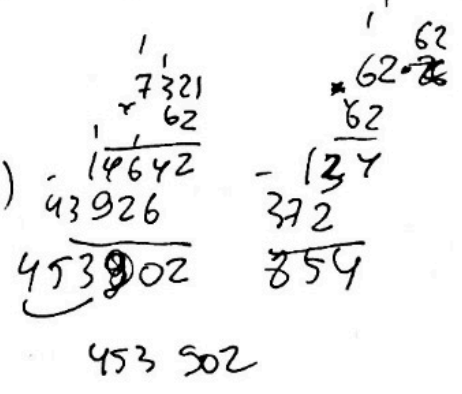 7321
× 62
14642
43926
453902
453 902
62
62 ·
× 62
124
372
854